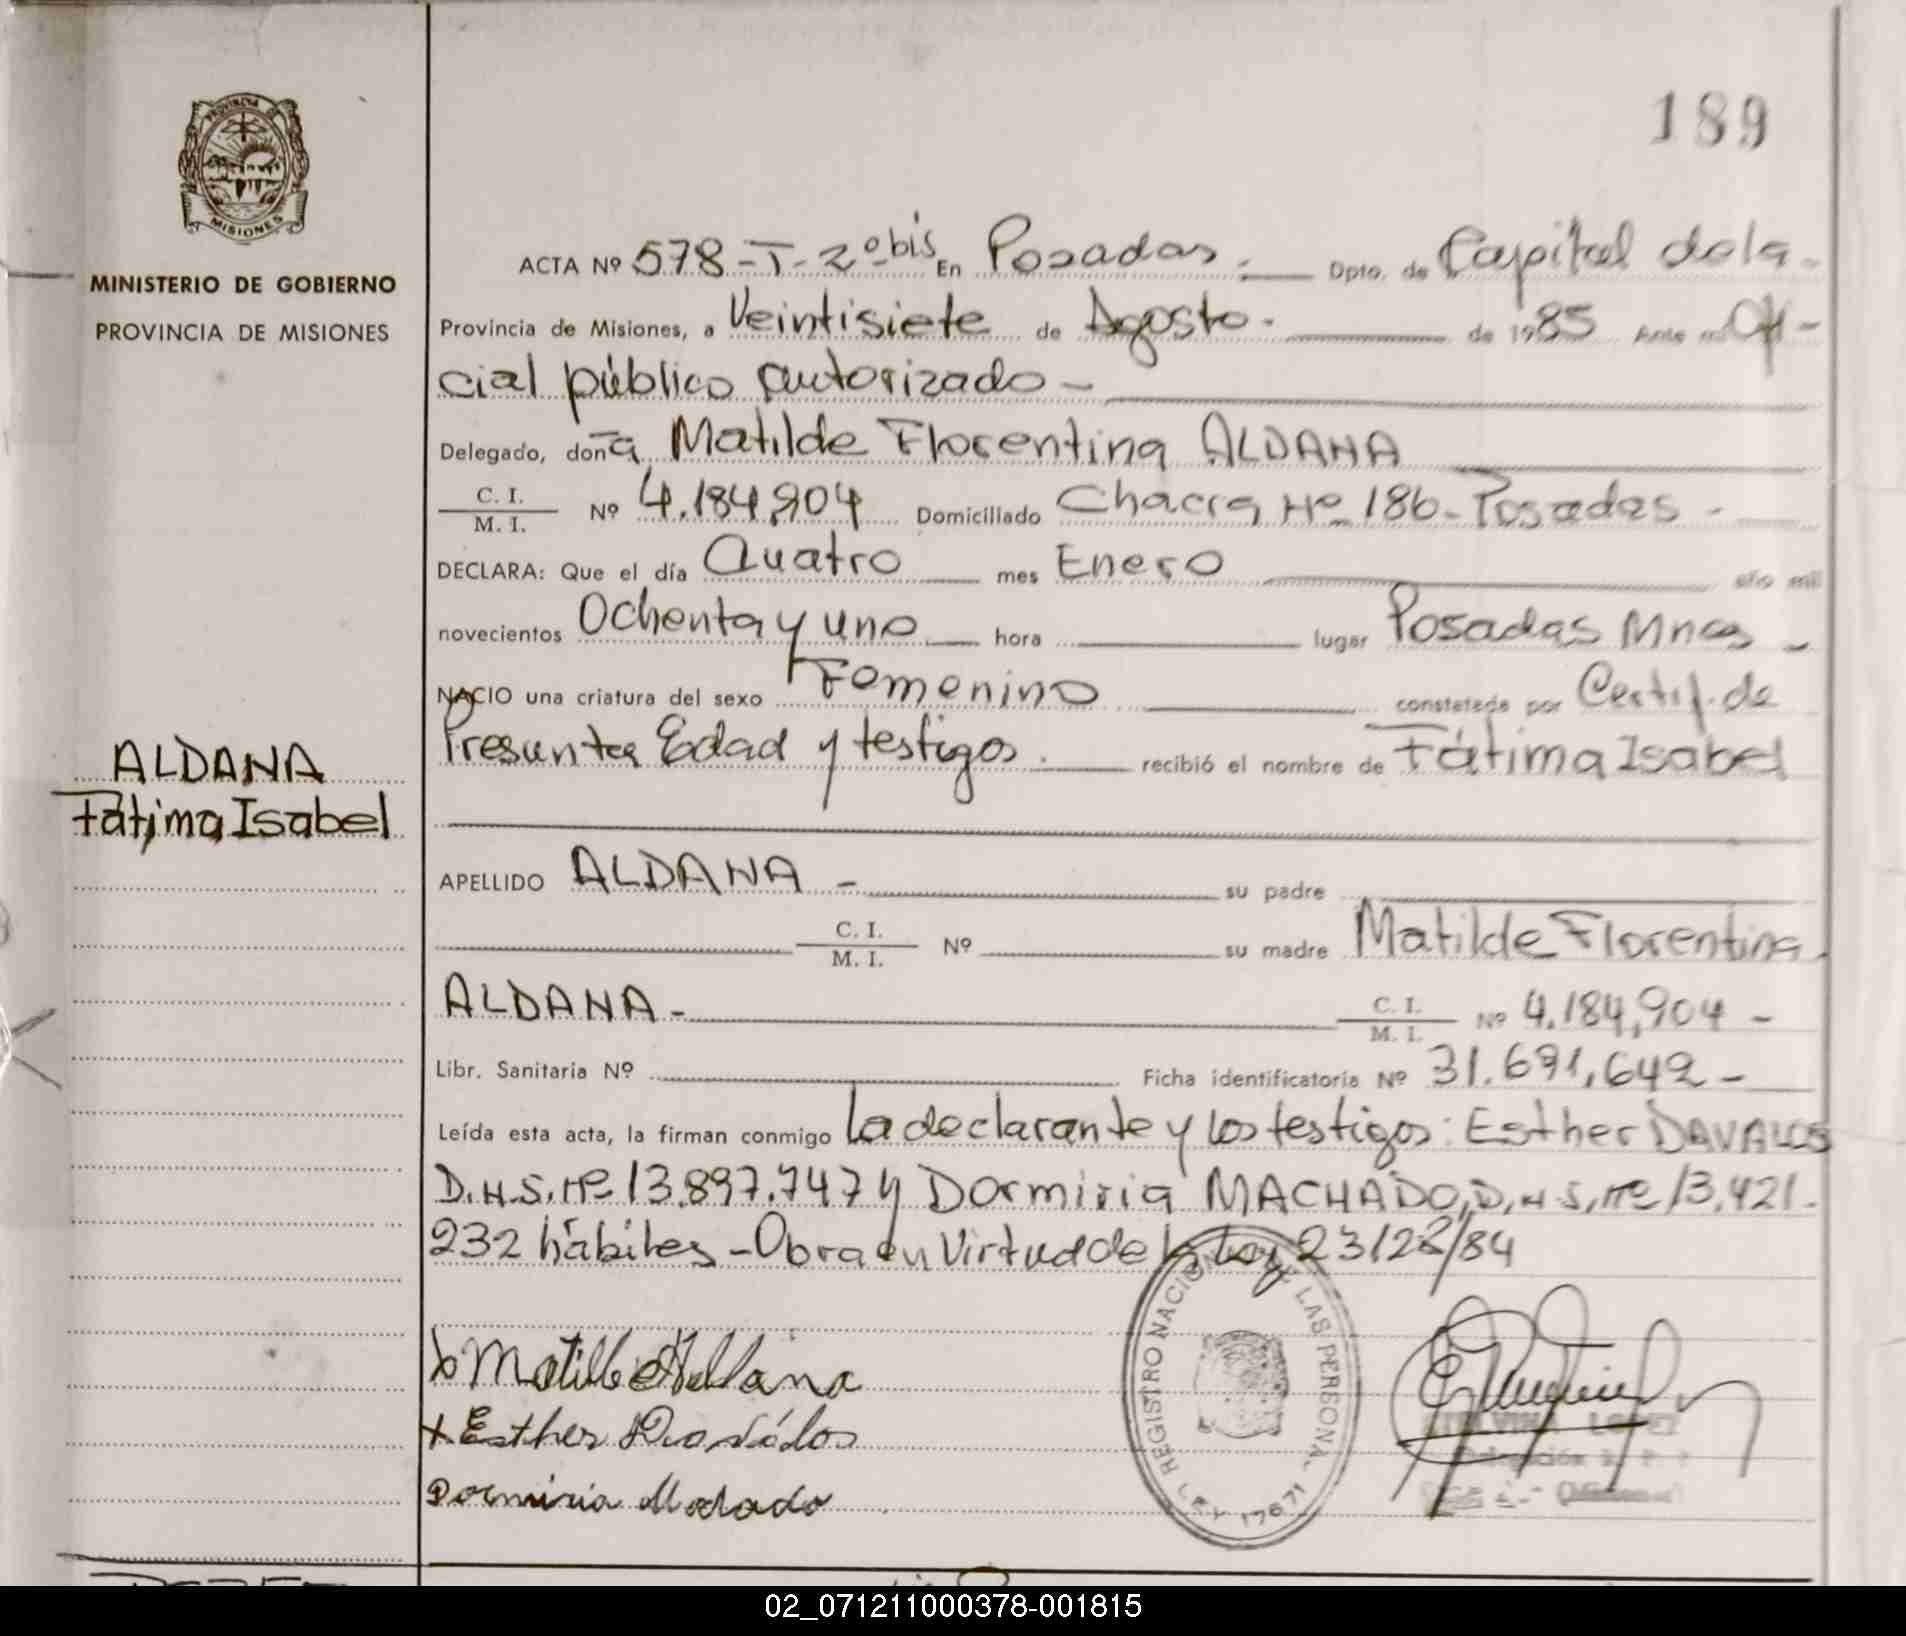 189
PROVINCIA DE
MISIONES
MINISTERIO DE GOBIERNO
PROVINCIA DE MISIONES
ALDANA
Fátima Isabel
ACTA Nº 578-T-2º bis En Posadas.- Dpto. de Capital de la
Provincia de Misiones, a Veintisiete de Agosto. de 1985 Ante mi Ofi-
cial público autorizado -
Delegado, doña Matilde Florentina ALDANA
C. I.
M. I. Nº 4.184,904 Domiciliado Chacra Nº 186- Posadas -
DECLARA: Que el día Cuatro mes Enero año mil
novecientos Ochenta y uno hora lugar Posadas Mnes -
NACIO una criatura del sexo Femenino constatada por Certif. de
Presunta Edad y testigos. recibió el nombre de Fátima Isabel
APELLIDO ALDANA - su padre
C. I.
M. I. Nº su madre Matilde Florentina
ALDANA - C. I.
M. I. Nº 4.184,904 -
Libr. Sanitaria Nº Ficha identificatoria Nº 31.691,642 -
Leída esta acta, la firman conmigo La declarante y los testigos: Esther DAVALOS
D.N.S. Nº 13.897.747 y Dormiria MACHADO, D.N.S, Nº 13.421.
232 hábiles - Obra en Virtud de la Ley 23/28/84
x Matilde Aldana
x Esther Daválos
Dormiria Machado
REGISTRO NACIONAL DE LAS PERSONAS
LEY 17671
LOPEZ
02_071211000378-001815